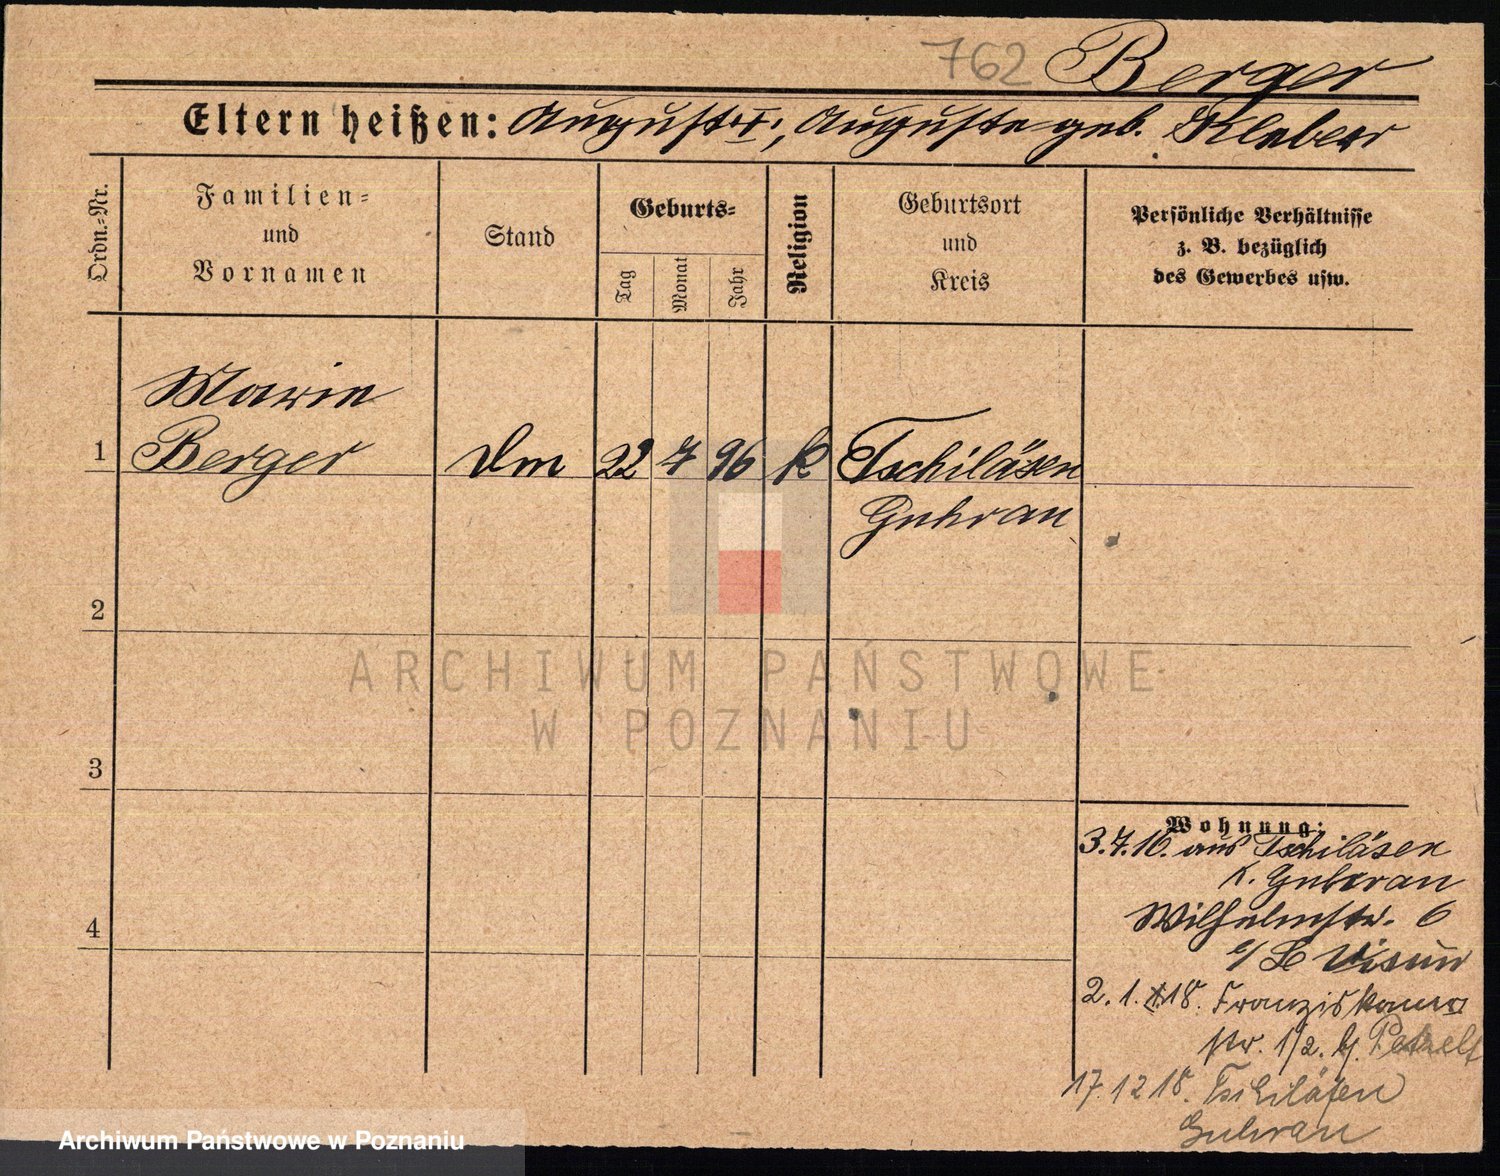 762 Berger
Eltern heißen: August I., Auguste geb. Kleber
Ordn.-Nr.
Familien-
und
Vornamen
Stand
Geburts-
Tag
Monat
Jahr
Religion
Geburtsort
und
Kreis
Persönliche Verhältnisse
z. B. bezüglich
des Gewerbes usw.
Marie
1 Berger Dm 22 7 96 k Tschiläsen
Guhrau
2
3
4
ARCHIWUM PAŃSTWOWE
W POZNANIU
Wohnung:
3.7.16. aus Tschiläsen
K. Guhrau
Wilhelmstr. 6
2.1.18. Franziskaner
str. 1/2. b/.
17.12 18. Tschiläsen
Guhrau
Archiwum Państwowe w Poznaniu